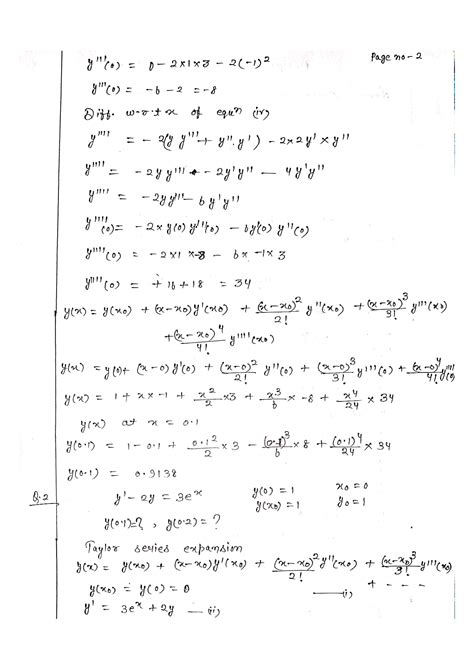 Page no-2
y'''(0) = 0-2×1×3 - 2(-1)²
y'''(0) = -6-2 = -8
Diff. w.r.t x of equn (iv)
y'''' = -2(y y''' + y''.y') - 2×2y' × y''
y'''' = -2yy''' - 2y'y'' - 4y'y''
y'''' = -2yy''' - 6y'y''
y''''(0) = -2×y(0) y'''(0) - 6y'(0) y''(0)
y''''(0) = -2×1 ×-8 - 6×-1×3
y''''(0) = +16+18 = 34
y(x) = y(x₀) + (x-x₀)y'(x₀) + (x-x₀)²/2! y''(x₀) + (x-x₀)³/3! y'''(x₀)
+ (x-x₀)⁴/4! y''''(x₀)
y(x) = y(0)+ (x-0)y'(0) + (x-0)²/2! y''(0) + (x-0)³/3! y'''(0) + (x-0)⁴/4! y''''(0)
y(x) = 1+x×-1 + x²/2 ×3 + x³/6 × -8 + x⁴/24 × 34
y(x) at x = 0.1
y(0.1) = 1-0.1 + 0.1²/2 × 3 - (0.1)³/6 × 8 + (0.1)⁴/24 × 34
y(0.1) = 0.9138
Q.2 y'-2y = 3eˣ y(0) = 1 x₀ = 0
y(x₀) = 1 y₀ = 1
y(0.1)=?, y(0.2) = ?
Taylor series expansion
y(x) = y(x₀) + (x-x₀)y'(x₀) + (x-x₀)²/2! y''(x₀) + (x-x₀)³/3! y'''(x₀)
—(i) + - - -
y(x₀) = y(0) = 0
y' = 3eˣ + 2y —(ii)